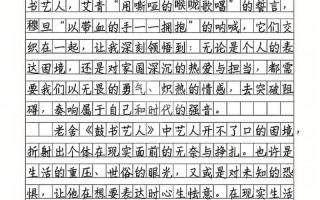 书艺人，艾青“用嘶哑的喉咙歌唱”的誓言，
穆旦“以带血的手一一拥抱”的呐喊，它们交
织在一起，让我深刻领悟到：无论是个人的表
达困境，还是对家国深沉的热爱与担当，都需
要我们以无畏的勇气、炽热的情感，去突破阻
碍，奏响属于自己和时代的强音。
老舍《鼓书艺人》中艺人开不了口的困境，
折射出个体在现实面前的无奈与挣扎。也许是
生活的重压、世俗的眼光，又或是对未知的恐
惧，让他在想要表达时心生怯意。在现实生活